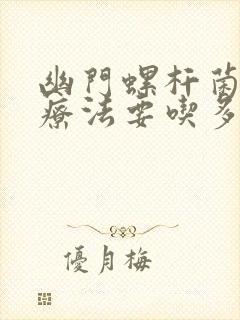 幽門螺杆菌
療法要喫多
優月梅